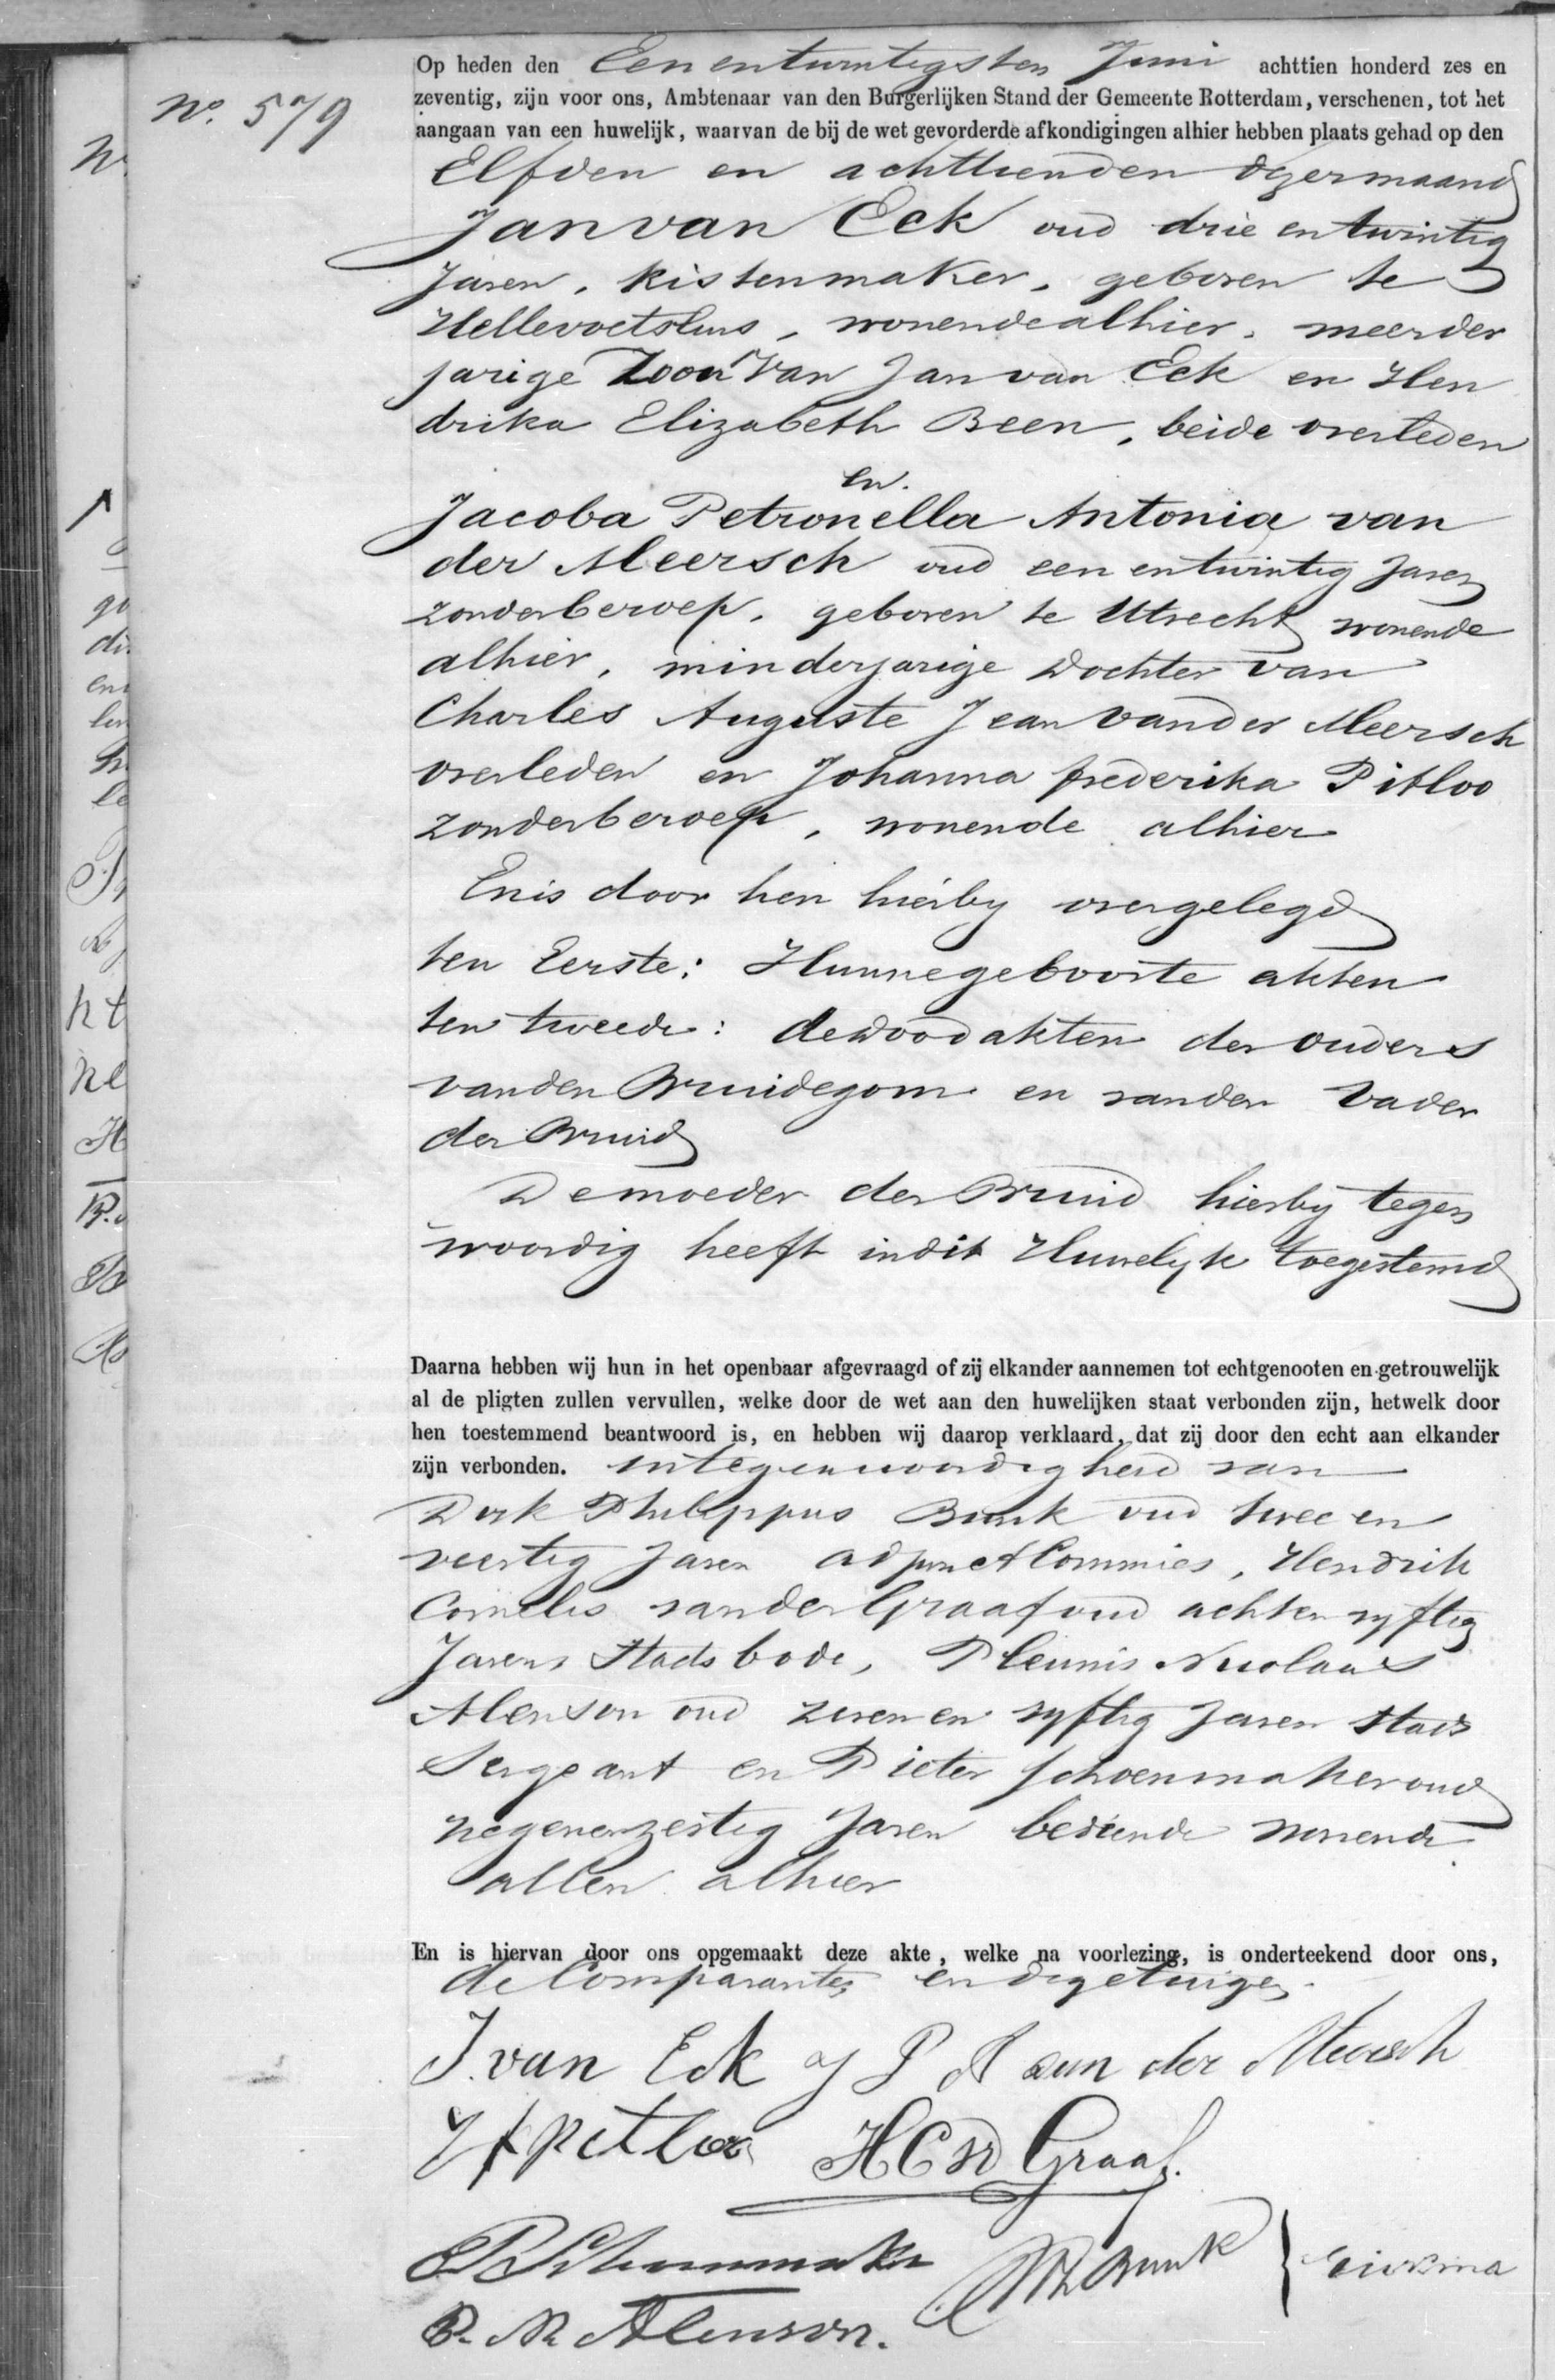 Op heden den Een en twintigsten Juni achttien honderd zes en
No. 579
zeventig, zijn voor ons, Ambtenaar van den Burgerlijken Stand der Gemeente Rotterdam, verschenen, tot het
aangaan van een huwelijk, waarvan de bij de wet gevorderde afkondigingen alhier hebben plaats gehad op den
Elfden en achttienden dezer maand
Jan van Eck oud drie en twintig
Jaren, kistenmaker, geboren te
Hellevoetsluis, wonende alhier, meerder
jarige Zoon van Jan van Eck en Hen
drika Elizabeth Been, beide overleden
en.
Jacoba Petronella Antonia van
der Meersch oud een en twintig Jaren
zonder beroep, geboren te Utrecht wonende
alhier, minderjarige dochter van
Charles Auguste Jean van der Meersch
overleden en Johanna frederika Pitloo
zonder beroep, wonende alhier
En is door hen hierby overgelegd
ten Eerste: Hunne geboorte akten
ten tweede: de dood akten der ouders
van den Bruidegom en van den Vader
der Bruid
De moeder der Bruid hierby tegen
woordig heeft in dit Huwelyk toegestemd
Daarna hebben wij hun in het openbaar afgevraagd of zij elkander aannemen tot echtgenooten en getrouwelijk
al de pligten zullen vervullen, welke door de wet aan den huwelijken staat verbonden zijn, hetwelk door
hen toestemmend beantwoord is, en hebben wij daarop verklaard, dat zij door den echt aan elkander
zijn verbonden. in tegenwoordigheid van
Dirk Philippus Bunk oud twee en
veertig Jaren adjunct Commies, Hendrik
Cornelis van der Graaf oud acht en vyftig
Jaren, Stads bode, Pleunis Nicolaas
Alenson oud zeven en vyftig Jaren Stads
Sergeant en Pieter Schoenmaker oud
negen en zestig Jaren bediende wonende
allen alhier
En is hiervan door ons opgemaakt deze akte, welke na voorlezing, is onderteekend door ons,
de Comparanten en de getuigen.
J. van Eck J P A van der Meersch
J f Pitloo H C vd Graaf.
P Schoenmaker D Ph Bunk
P. N. Alenson.